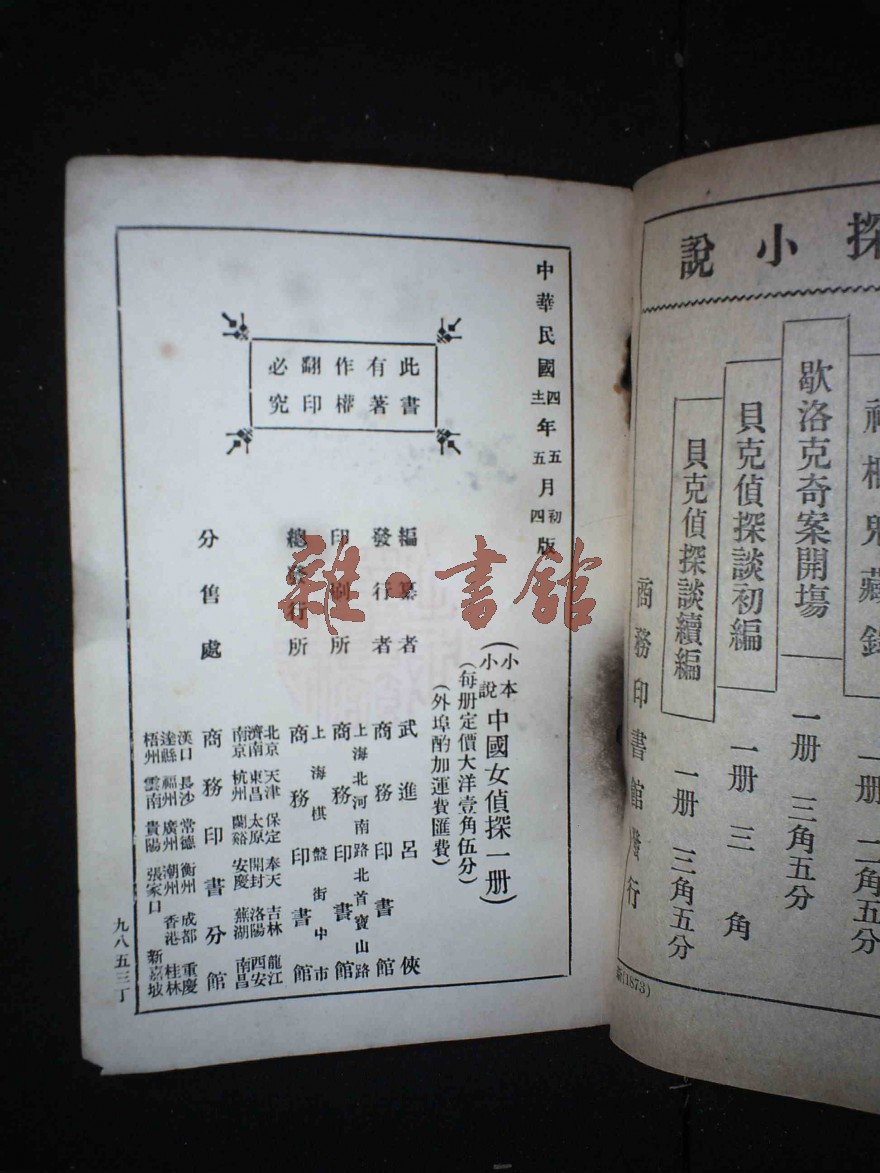 探小說
歇洛克奇案開場
一册 三角五分
貝克偵探談初編
一册 三角
貝克偵探談續編
一册 三角五分
商務印書館發行
(1873)
中華民國四年五月初版
五月四版
(小本小說中國女偵探一册)
(每册定價大洋壹角伍分)
(外埠酌加運費匯費)
此書
有著
作權
翻印
必究
編纂者 武進呂俠
發行者 商務印書館
上海北河南路北首寶山路
印刷所 商務印書館
上海棋盤街中市
總發行所 商務印書館
分售處
北京 天津 保定 奉天 吉林 龍江
濟南 東昌 太原 開封 洛陽 西安
南京 杭州 蘭谿 安慶 蕪湖 南昌
商務印書分館
漢口 長沙 常德 衡州 成都 重慶
達縣 福州 廣州 潮州 香港 桂林
梧州 雲南 貴陽 張家口 新嘉坡
九八五三丁
雜·書館